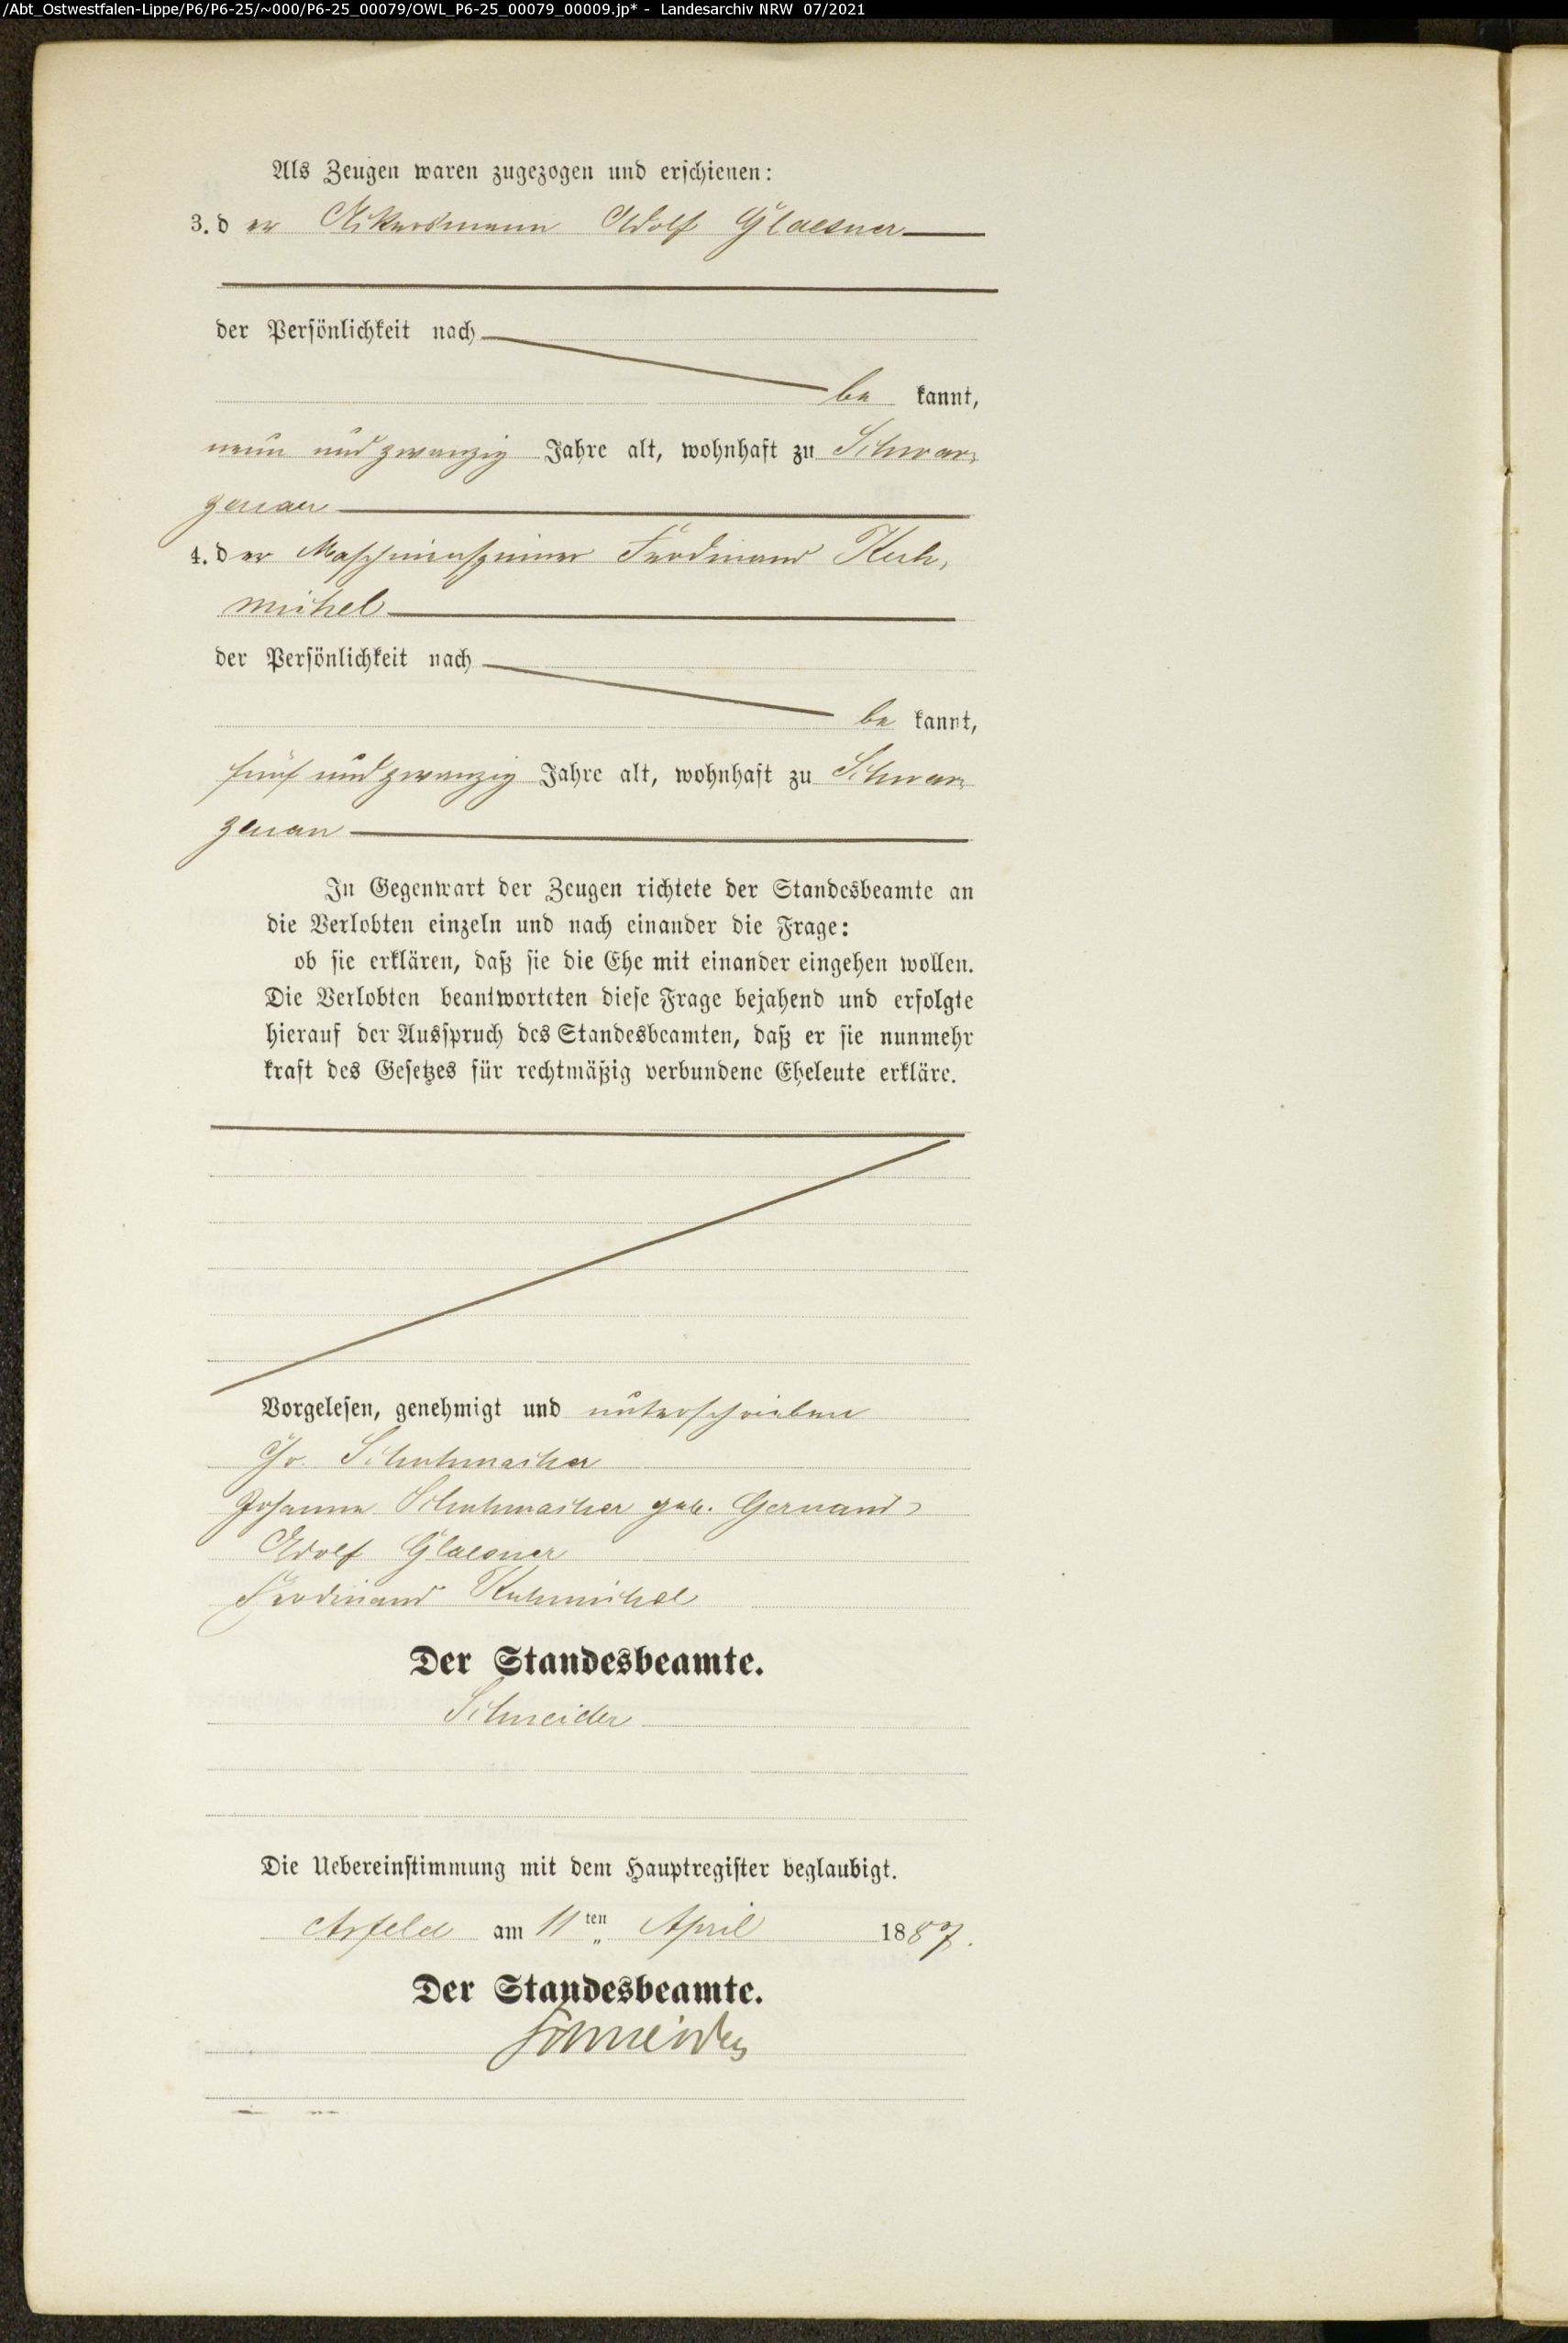 /Abt_Ostwestfalen-Lippe/P6/P6-25/~000/P6-25_00079/OWL_P6-25_00079_00009.jp* - Landesarchiv NRW 07/2021
Als Zeugen waren zugezogen und erschienen:
3. der Ackersmann Adolf Glaesner
der Persönlichkeit nach
be kannt,
neun und zwanzig Jahre alt, wohnhaft zu Schwar-
zenau
4. der Maschinenspinner Ferdinand Kuh-
michel
der Persönlichkeit nach
be kannt,
fünf und zwanzig Jahre alt, wohnhaft zu Schwar-
zenau
In Gegenwart der Zeugen richtete der Standesbeamte an
die Verlobten einzeln und nach einander die Frage:
ob sie erklären, daß sie die Ehe mit einander eingehen wollen.
Die Verlobten beantworteten diese Frage bejahend und erfolgte
hierauf der Ausspruch des Standesbeamten, daß er sie nunmehr
kraft des Gesetzes für rechtmäßig verbundene Eheleute erkläre.
Vorgelesen, genehmigt und unterschrieben
Schuhmacher
Johanna Schuhmacher geb. Gernand
Adolf Glaesner
Ferdinand Kuhmichel
Der Standesbeamte.
Schneider
Die Uebereinstimmung mit dem Hauptregister beglaubigt.
Arfeld am 11ten April 1887.
Der Standesbeamte.
Schneider